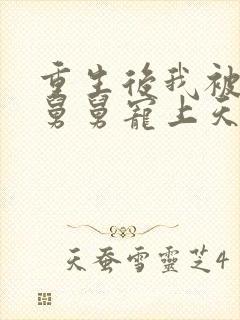 重生後我被
舅舅寵上天
天蚕雪靈芝4